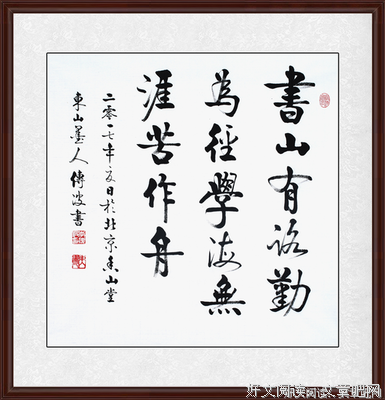 書山有路勤
為徑學海無
涯苦作舟
二零一七年夏日於北京山堂
東山墨人傳波書
好文阅读